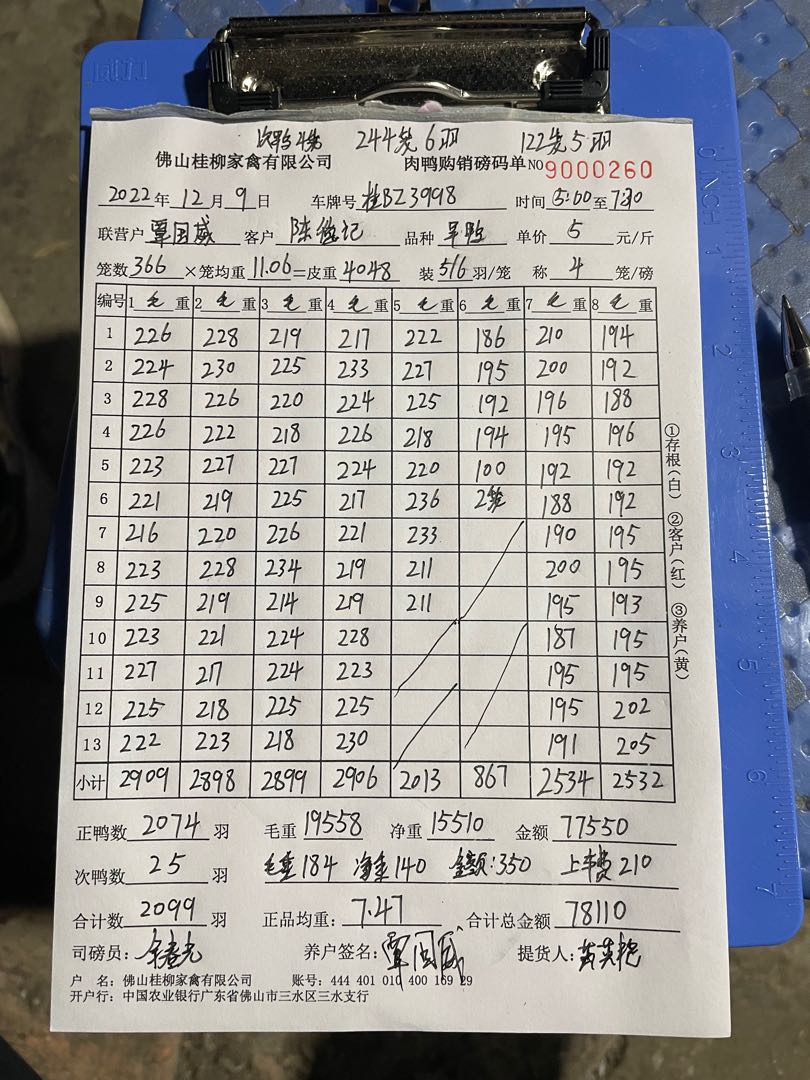 次鸭4笼 244笼6羽 122笼5羽
佛山桂柳家禽有限公司 肉鸭购销磅码单 NO 9000260
2022年12月9日 车牌号桂BZ3998 时间5:00至7:30
联营户覃国威 客户陈 记 品种 单价5元/斤
笼数366×笼均重11.06=皮重4048 装5/6羽/笼 称4笼/磅
编号 1毛重 2毛重 3毛重 4毛重 5毛重 6毛重 7毛重 8毛重
1 226 228 219 217 222 186 210 194
2 224 230 225 233 227 195 200 192
3 228 226 220 224 225 192 196 188
4 226 222 218 226 218 194 195 196
5 223 227 227 224 220 100 192 192
6 221 219 225 217 236 2笼 188 192
7 216 220 226 221 233 190 195
8 223 228 234 219 211 200 195
9 225 219 214 219 211 195 193
10 223 221 224 228 187 195
11 227 217 224 223 195 195
12 225 218 225 225 195 202
13 222 223 218 230 191 205
小计 2909 2898 2899 2906 2013 867 2534 2532
正鸭数2074羽 毛重19558 净重15510 金额77550
次鸭数25羽 毛重184 净重140 金额:350 上车费210
合计数2099羽 正品均重:7.47 合计总金额78110
司磅员: 养户签名:覃国威 提货人:
户 名:佛山桂柳家禽有限公司 账号:444 401 010 400 169 29
开户行:中国农业银行广东省佛山市三水区三水支行
①存根(白) ②客户(红) ③养户(黄)
INCH
1
2
3
4
5
6
7